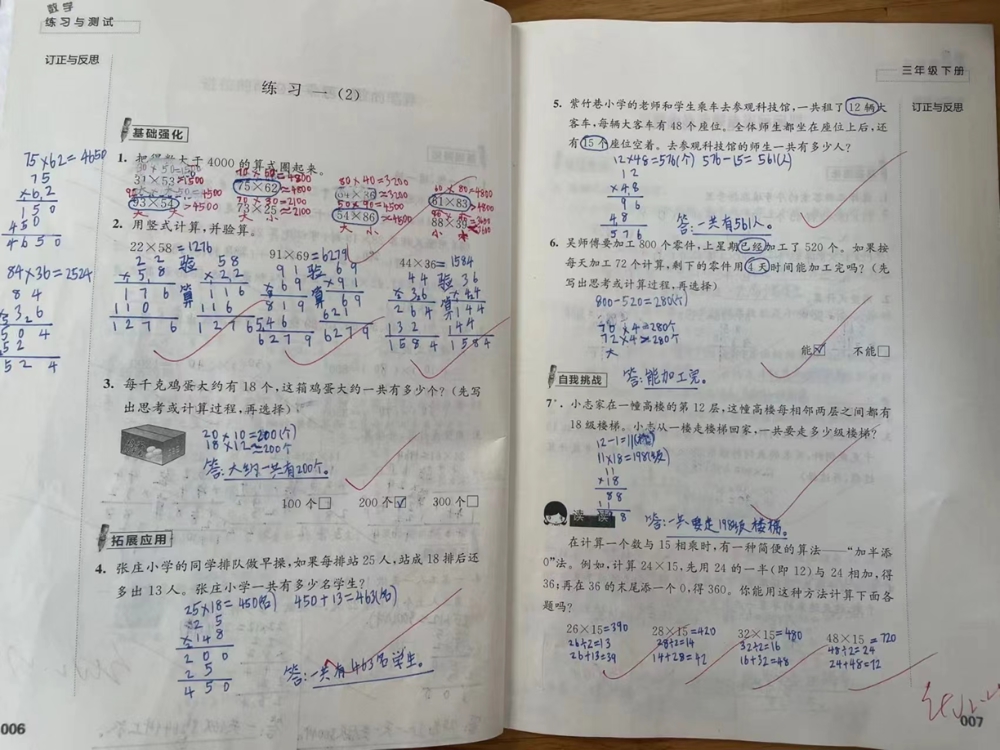 数学
练习与测试
订正与反思
练习一（2）
基础强化
1. 把得数大于4000的算式圈起来。
31×53 75×62 81×83
93×54 73×25 54×86 88×39
75×62=4650
75
×62
150
450
4650
84×36=2524
84
504
2. 用竖式计算，并验算。
22×58=1276 91×69=6279 44×36=1584
22 验 58 91 验 69 44 验 36
×58 算 ×22 ×69 算 ×91 ×36 算 ×44
176 116 819 69 264 144
110 116 546 621 132 144
1276 1276 6279 6279 1584 1584
3. 每千克鸡蛋大约有18个，这箱鸡蛋大约一共有多少个？（先写
出思考或计算过程，再选择）
20×10=200(个)
18×12≈200个
答：大约一共有200个。
100个□ 200个☑ 300个□
拓展应用
4. 张庄小学的同学排队做早操，如果每排站25人，站成18排后还
多出13人。张庄小学一共有多少名学生？
25×18=450(名) 450+13=463(名)
25
200
25
450
答：一共有463名学生。
006
三年级下册
订正与反思
5. 紫竹巷小学的老师和学生乘车去参观科技馆，一共租了12辆大
客车，每辆大客车有48个座位。全体师生都坐在座位上后，还
有15个座位空着。去参观科技馆的师生一共有多少人？
12×48=576(个) 576-15=561(人)
12
×48
96
48
576
答：一共有561人。
6. 吴师傅要加工800个零件，上星期已经加工了520个。如果按
每天加工72个计算，剩下的零件用4天时间能加工完吗？（先
写出思考或计算过程，再选择）
800-520=280(个)
70×4=280个
72×4≈280个
大
能☑ 不能□
答：能加工完。
自我挑战
7*. 小志家在一幢高楼的第12层，这幢高楼每相邻两层之间都有
18级楼梯。小志从一楼走楼梯回家，一共要走多少级楼梯？
12-1=11
11×18=198(级)
11
×18
88
答：一共要走198级楼梯。
读一读
在计算一个数与15相乘时，有一种简便的算法——“加半添
0”法。例如，计算24×15，先用24的一半（即12）与24相加，得
36；再在36的末尾添一个0，得360。你能用这种方法计算下面各
题吗？
26×15=390 28×15=420 32×15=480 48×15=720
26÷2=13 28÷2=14 32÷2=16 48÷2=24
26+13=39 14+28=42 16+32=48 24+48=72
007